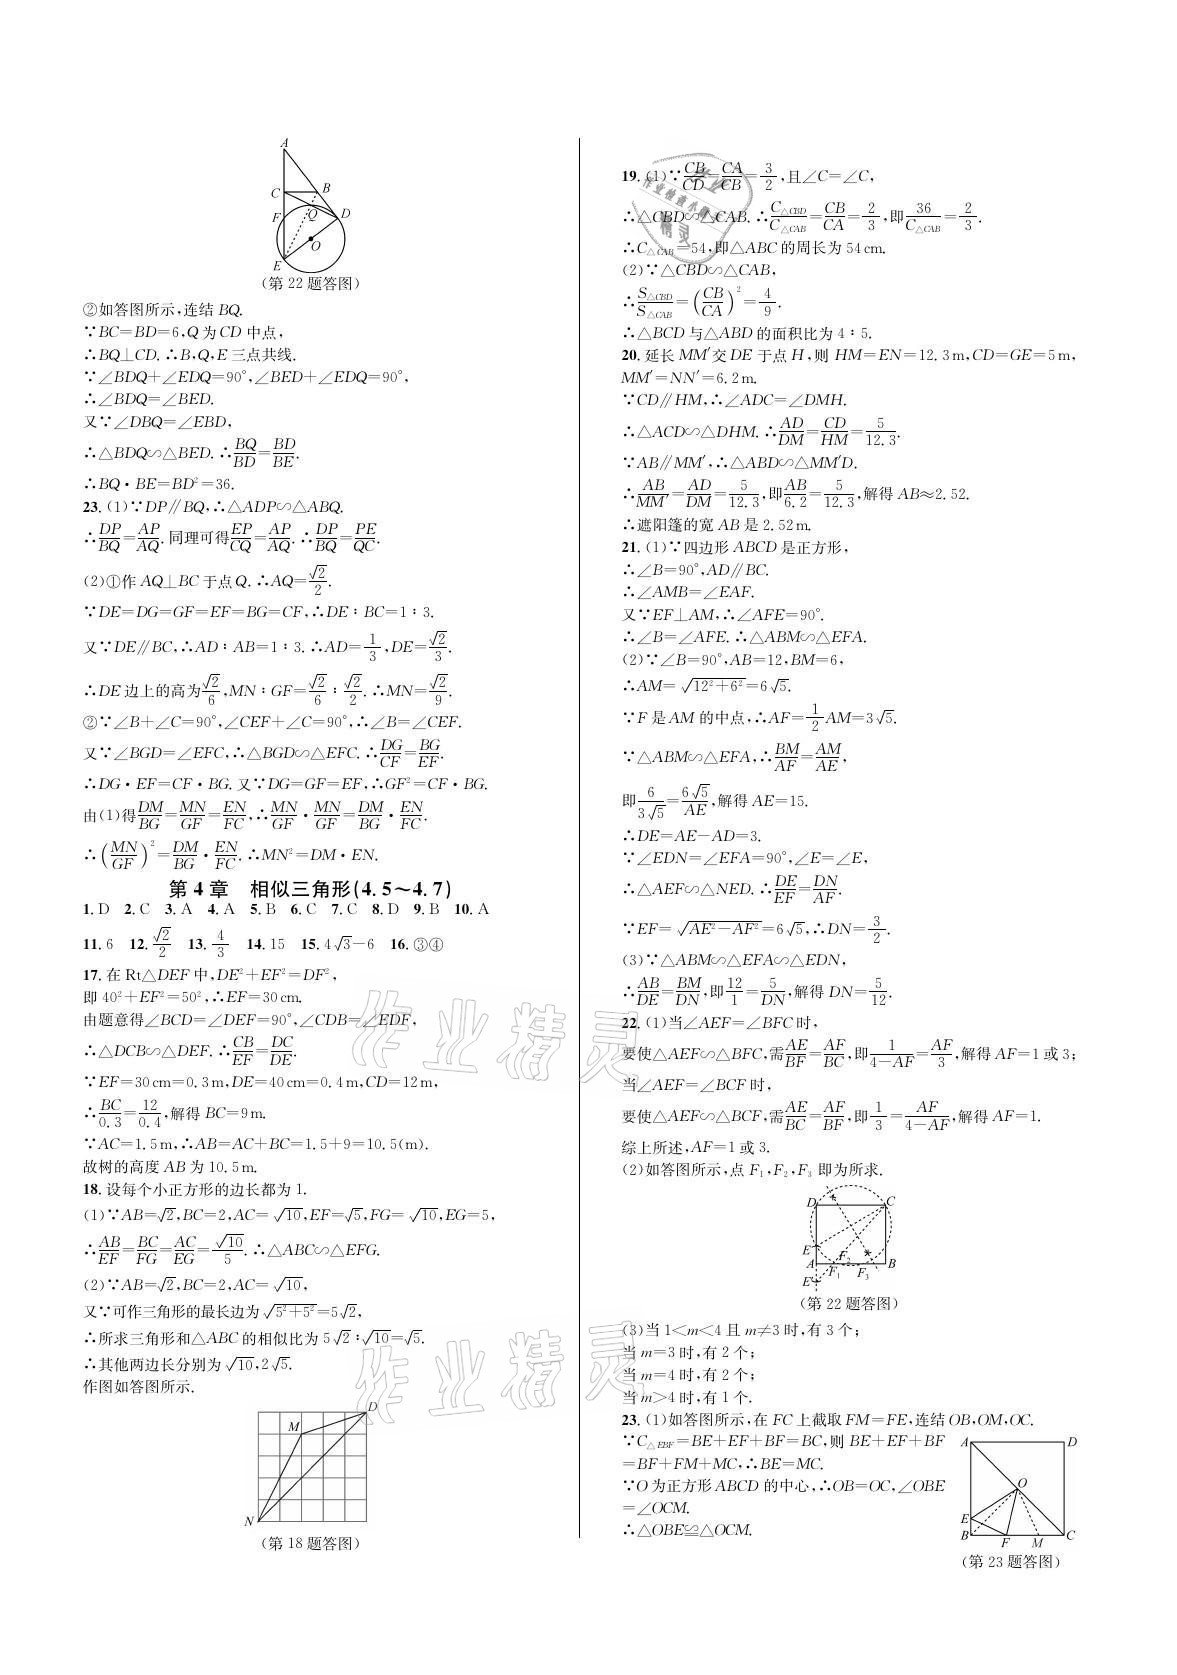 A
C
B
F
Q
D
O
E
(第22题答图)
②如答图所示,连结BQ.
∵BC=BD=6,Q为CD中点,
∴BQ⊥CD.∴B,Q,E三点共线.
∵∠BDQ+∠EDQ=90°,∠BED+∠EDQ=90°,
∴∠BDQ=∠BED.
又∵∠DBQ=∠EBD,
∴△BDQ∽△BED.∴BQ/BD=BD/BE.
∴BQ·BE=BD²=36.
23.(1)∵DP∥BQ,∴△ADP∽△ABQ.
∴DP/BQ=AP/AQ.同理可得EP/CQ=AP/AQ.∴DP/BQ=PE/QC.
(2)①作AQ⊥BC于点Q.∴AQ=√2/2.
∵DE=DG=GF=EF=BG=CF,∴DE∶BC=1∶3.
又∵DE∥BC,∴AD∶AB=1∶3.∴AD=1/3,DE=√2/3.
∴DE边上的高为√2/6,MN∶GF=√2/6∶√2/2.∴MN=√2/9.
②∵∠B+∠C=90°,∠CEF+∠C=90°,∴∠B=∠CEF.
又∵∠BGD=∠EFC,∴△BGD∽△EFC.∴DG/CF=BG/EF.
∴DG·EF=CF·BG.又∵DG=GF=EF,∴GF²=CF·BG.
由(1)得DM/BG=MN/GF=EN/FC,∴MN/GF·MN/GF=DM/BG·EN/FC.
∴(MN/GF)²=DM/BG·EN/FC.∴MN²=DM·EN.
第4章 相似三角形(4.5～4.7)
1.D 2.C 3.A 4.A 5.B 6.C 7.C 8.D 9.B 10.A
11.6 12.√2/2 13.4/3 14.15 15.4√3-6 16.③④
17.在Rt△DEF中,DE²+EF²=DF²,
即40²+EF²=50²,∴EF=30cm.
由题意得∠BCD=∠DEF=90°,∠CDB=∠EDF,
∴△DCB∽△DEF.∴CB/EF=DC/DE.
∵EF=30cm=0.3m,DE=40cm=0.4m,CD=12m,
∴BC/0.3=12/0.4,解得BC=9m.
∵AC=1.5m,∴AB=AC+BC=1.5+9=10.5(m).
故树的高度AB为10.5m.
18.设每个小正方形的边长都为1.
(1)∵AB=√2,BC=2,AC=√10,EF=√5,FG=√10,EG=5,
∴AB/EF=BC/FG=AC/EG=√10/5.∴△ABC∽△EFG.
(2)∵AB=√2,BC=2,AC=√10,
又∵可作三角形的最长边为√(5²+5²)=5√2,
∴所求三角形和△ABC的相似比为5√2∶√10=√5.
∴其他两边长分别为√10,2√5.
作图如答图所示.
D
M
N
(第18题答图)
19.(1)∵CB/CD=CA/CB=3/2,且∠C=∠C,
∴△CBD∽△CAB.∴C△CBD/C△CAB=CB/CA=2/3,即36/C△CAB=2/3.
∴C△CAB=54,即△ABC的周长为54cm.
(2)∵△CBD∽△CAB,
∴S△CBD/S△CAB=(CB/CA)²=4/9.
∴△BCD与△ABD的面积比为4∶5.
20.延长MM′交DE于点H,则HM=EN=12.3m,CD=GE=5m,
MM′=NN′=6.2m.
∵CD∥HM,∴∠ADC=∠DMH.
∴△ACD∽△DHM.∴AD/DM=CD/HM=5/12.3.
∵AB∥MM′,∴△ABD∽△MM′D.
∴AB/MM′=AD/DM=5/12.3,即AB/6.2=5/12.3,解得AB≈2.52.
∴遮阳篷的宽AB是2.52m.
21.(1)∵四边形ABCD是正方形,
∴∠B=90°,AD∥BC.
∴∠AMB=∠EAF.
又∵EF⊥AM,∴∠AFE=90°.
∴∠B=∠AFE.∴△ABM∽△EFA.
(2)∵∠B=90°,AB=12,BM=6,
∴AM=√(12²+6²)=6√5.
∵F是AM的中点,∴AF=1/2AM=3√5.
∵△ABM∽△EFA,∴BM/AF=AM/AE,
即6/3√5=6√5/AE,解得AE=15.
∴DE=AE-AD=3.
∵∠EDN=∠EFA=90°,∠E=∠E,
∴△AEF∽△NED.∴DE/EF=DN/AF.
∵EF=√(AE²-AF²)=6√5,∴DN=3/2.
(3)∵△ABM∽△EFA∽△EDN,
∴AB/DE=BM/DN,即12/1=5/DN,解得DN=5/12.
22.(1)当∠AEF=∠BFC时,
要使△AEF∽△BFC,需AE/BF=AF/BC,即1/4-AF=AF/3,解得AF=1或3;
当∠AEF=∠BCF时,
要使△AEF∽△BCF,需AE/BC=AF/BF,即1/3=AF/4-AF,解得AF=1.
综上所述,AF=1或3.
(2)如答图所示,点F₁,F₂,F₃即为所求.
D
C
E
F₂
A
F₁
F₃
B
E′
(第22题答图)
(3)当1<m<4且m≠3时,有3个;
当m=3时,有2个;
当m=4时,有2个;
当m>4时,有1个.
23.(1)如答图所示,在FC上截取FM=FE,连结OB,OM,OC.
∵C△EBF=BE+EF+BF=BC,则BE+EF+BF
=BF+FM+MC,∴BE=MC.
∵O为正方形ABCD的中心,∴OB=OC,∠OBE
=∠OCM.
∴△OBE≌△OCM.
A
D
O
E
B
F
M
C
(第23题答图)
作业精灵
作业精灵
作业
作业检查小助手
精灵